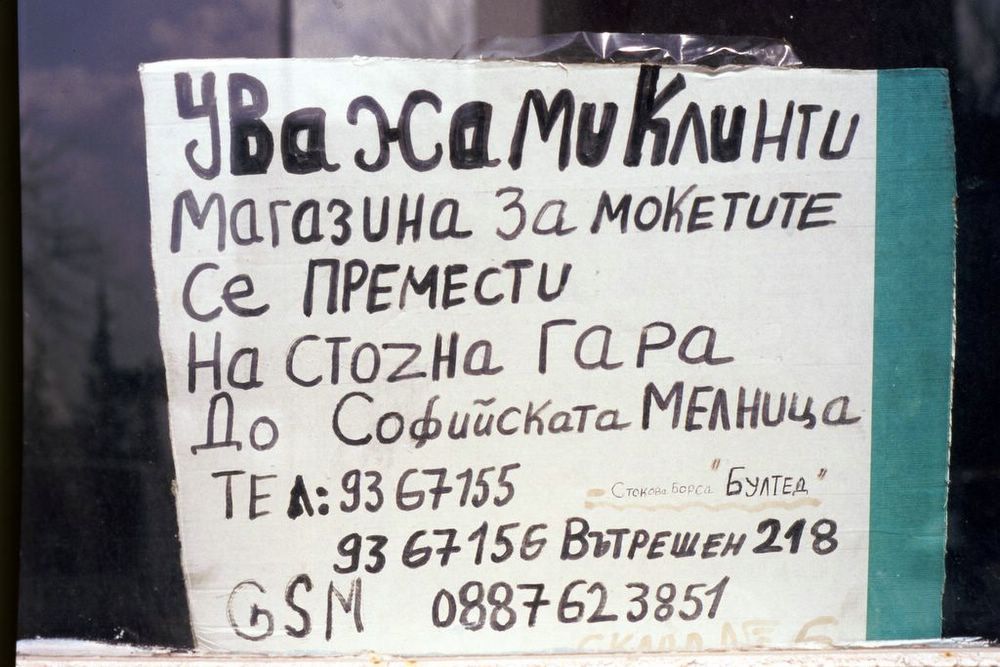 УважамиКлинти
Магазина За МОКЕТИТЕ
Се ПРЕМЕСТИ
На СТОZНа Гара
До Софийската МЕЛНИЦа
ТЕЛ: 93 67155
Стокова Борса "БУЛТЕД"
93 67156 ВЪТРЕШЕН 218
GSM 0887623851
СКЛАД № 6